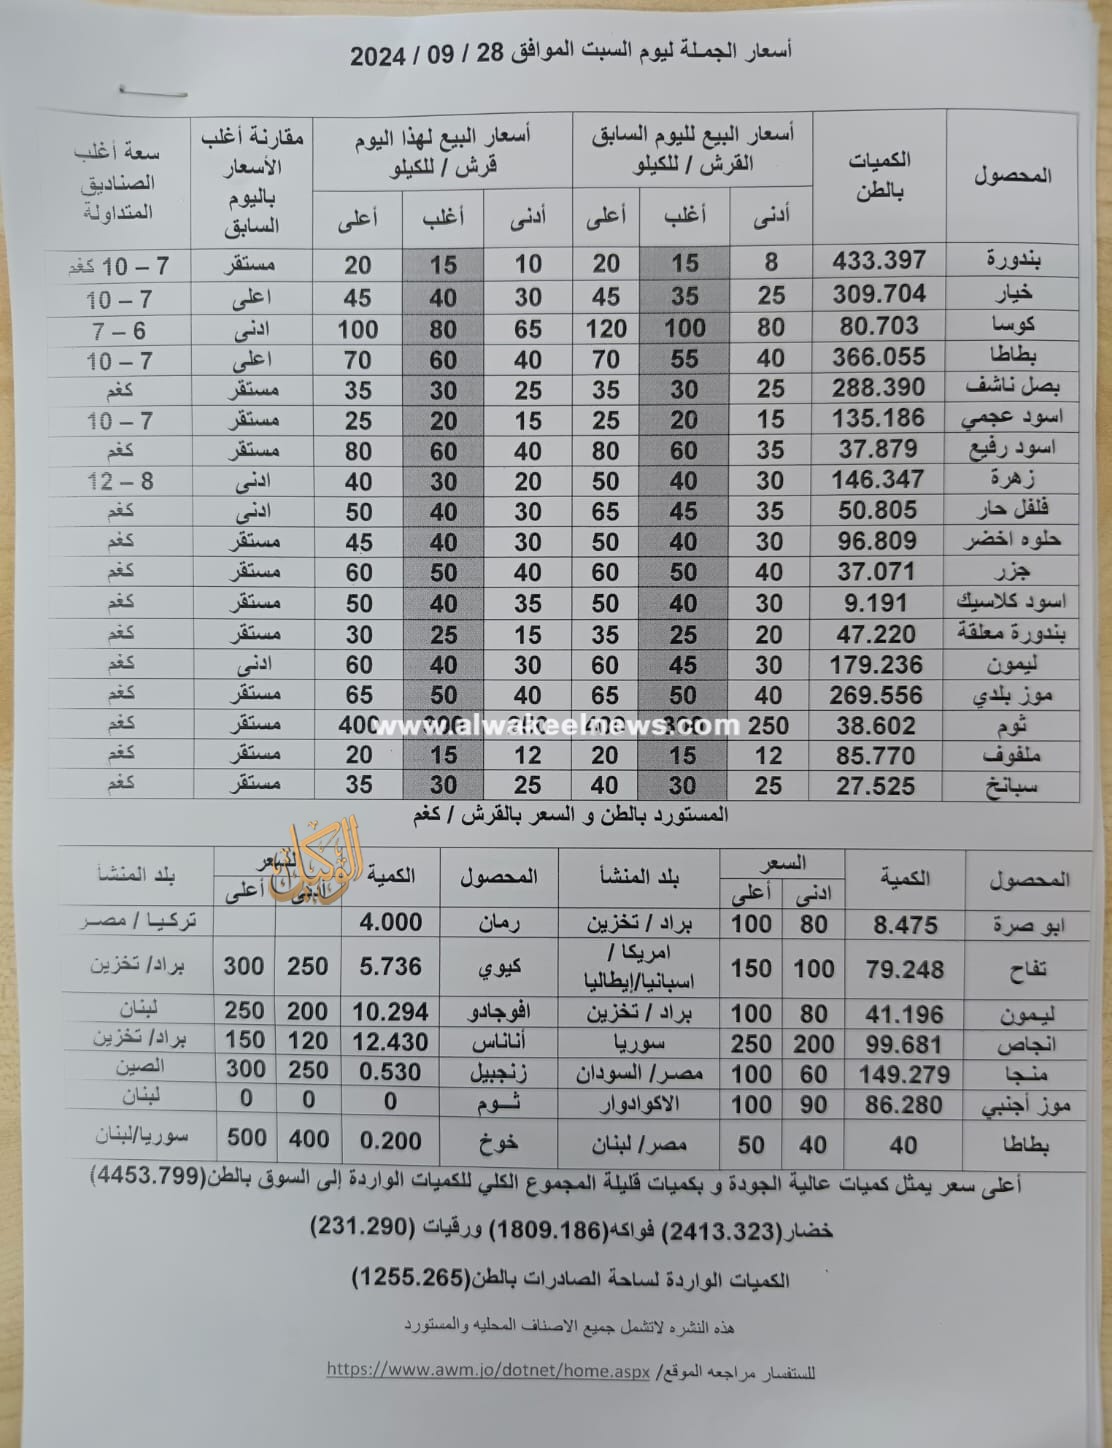 أسعار الجملة ليوم السبت الموافق 28 / 09 / 2024
المحصول الكميات بالطن أسعار البيع لليوم السابق القرش / للكيلو أسعار البيع لهذا اليوم قرش / للكيلو مقارنة أغلب الأسعار باليوم السابق سعة أغلب الصناديق المتداولة
أدنى أغلب أعلى أدنى أغلب أعلى
بندورة 433.397 8 15 20 10 15 20 مستقر 7 – 10 كغم
خيار 309.704 25 35 45 30 40 45 اعلى 7 – 10
كوسا 80.703 80 100 120 65 80 100 ادنى 6 – 7
بطاطا 366.055 40 55 70 40 60 70 اعلى 7 – 10
بصل ناشف 288.390 25 30 35 25 30 35 مستقر كغم
اسود عجمي 135.186 15 20 25 15 20 25 مستقر 7 – 10
اسود رفيع 37.879 35 60 80 40 60 80 مستقر كغم
زهرة 146.347 30 40 50 20 30 40 ادنى 8 – 12
فلفل حار 50.805 35 45 65 30 40 50 ادنى كغم
حلوه اخضر 96.809 30 40 50 30 40 45 مستقر كغم
جزر 37.071 40 50 60 40 50 60 مستقر كغم
اسود كلاسيك 9.191 30 40 50 35 40 50 مستقر كغم
بندورة معلقة 47.220 20 25 35 15 25 30 مستقر كغم
ليمون 179.236 30 45 60 30 40 60 ادنى كغم
موز بلدي 269.556 40 50 65 40 50 65 مستقر كغم
ثوم 38.602 250 400 مستقر كغم
www.alwakeelnews.com
ملفوف 85.770 12 15 20 12 15 20 مستقر كغم
سبانخ 27.525 25 30 40 25 30 35 مستقر كغم
المستورد بالطن و السعر بالقرش / كغم
المحصول الكمية السعر بلد المنشأ المحصول الكمية السعر بلد المنشأ
ادنى أعلى ادنى أعلى
الوكيل
ابو صرة 8.475 80 100 براد / تخزين رمان 4.000 تركيا / مصر
تفاح 79.248 100 150 امريكا / اسبانيا/إيطاليا كيوي 5.736 250 300 براد/ تخزين
ليمون 41.196 80 100 براد / تخزين افوجادو 10.294 200 250 لبنان
انجاص 99.681 200 250 سوريا أناناس 12.430 120 150 براد/ تخزين
منجا 149.279 60 100 مصر/ السودان زنجبيل 0.530 250 300 الصين
موز أجنبي 86.280 90 100 الاكوادوار ثــوم 0 0 0 لبنان
بطاطا 40 40 50 مصر/ لبنان خوخ 0.200 400 500 سوريا/لبنان
أعلى سعر يمثل كميات عالية الجودة و بكميات قليلة المجموع الكلي للكميات الواردة إلى السوق بالطن(4453.799)
خضار(2413.323) فواكه(1809.186) ورقيات (231.290)
الكميات الواردة لساحة الصادرات بالطن(1255.265)
هذه النشره لاتشمل جميع الاصناف المحليه والمستورد
للستفسار مراجعه الموقع/ https://www.awm.jo/dotnet/home.aspx